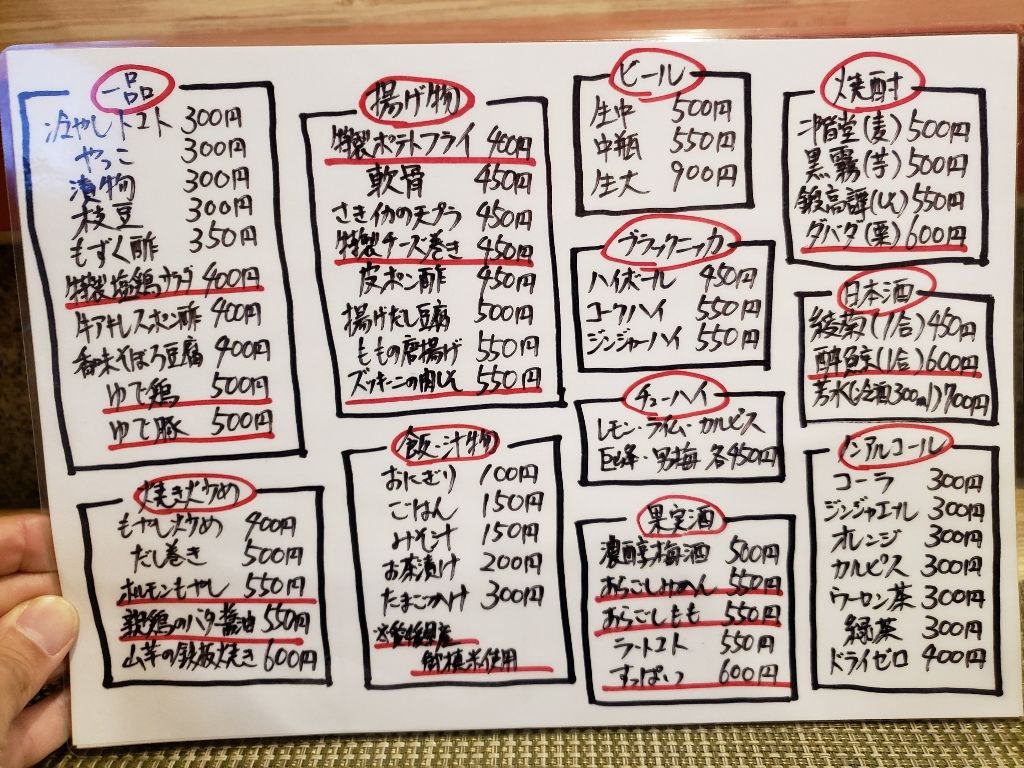 一品
冷やしトマト 300円
やっこ 300円
漬物 300円
枝豆 300円
もずく酢 350円
特製塩鶏サラダ 400円
牛アキレスポン酢 400円
香味そぼろ豆腐 400円
ゆで鶏 500円
ゆで豚 500円
焼き炒め
もやし炒め 400円
だし巻き 500円
ホルモンもやし 550円
鶏のバター醤油 550円
山芋の鉄板焼き 600円
揚げ物
特製ポテトフライ 400円
軟骨 450円
さきイカの天プラ 450円
特製チーズ巻き 450円
皮ポン酢 450円
揚げだし豆腐 500円
ももの唐揚げ 550円
ズッキーニの肉しそ 550円
飯・汁物
おにぎり 100円
ごはん 150円
みそ汁 150円
お茶漬け 200円
たまごかけ 300円
使用
ビール
生中 500円
中瓶 550円
生大 900円
ブラックニッカ
ハイボール 450円
コークハイ 550円
ジンジャーハイ 550円
チューハイ
レモン・ライム・カルピス
巨峰・男梅 各450円
果実酒
濃醇梅酒 500円
あらごしみかん 550円
あらごしもも 550円
ラートマト 550円
すっぱいつ 600円
焼酎
二階堂(麦) 500円
黒霧(芋) 500円
銀高譚(しそ) 550円
ダバダ(栗) 600円
日本酒
綾菊(1合) 450円
酔鯨(1合) 600円
300ml) 700円
ノンアルコール
コーラ 300円
ジンジャエール 300円
オレンジ 300円
カルピス 300円
ウーロン茶 300円
緑茶 300円
ドライゼロ 400円